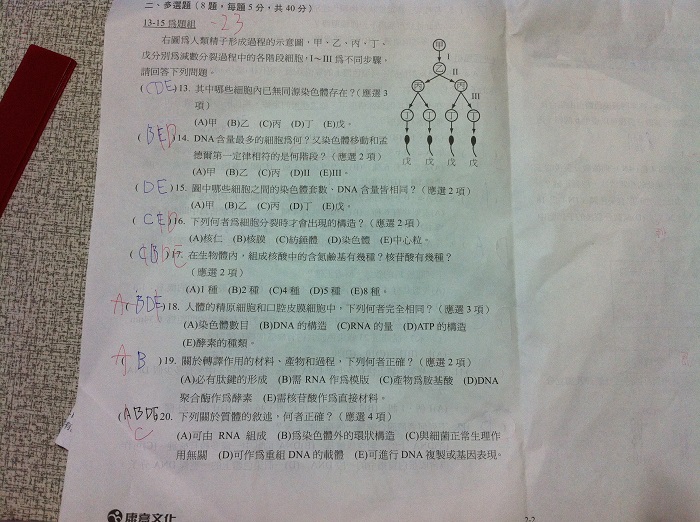 二、多選題(8題，每題5分，共40分)
13-15為題組 -23
右圖爲人類精子形成過程的示意圖，甲、乙、丙、丁、
戊分別爲減數分裂過程中的各階段細胞，I~III 爲不同步驟。
請回答下列問題。
(CDE)13. 其中哪些細胞內已無同源染色體存在？(應選 3
項)
(A)甲 (B)乙 (C)丙 (D)丁 (E)戊。
14. DNA 含量最多的細胞爲何？又染色體移動和孟
德爾第一定律相符的是何階段？(應選 2 項)
(A)甲 (B)乙 (C)丙 (D)II (E)III。
(DE)15. 圖中哪些細胞之間的染色體套數、DNA 含量皆相同？(應選 2 項)
(A)甲 (B)乙 (C)丙 (D)丁 (E)戊。
16. 下列何者爲細胞分裂時才會出現的構造？(應選 2 項)
(A)核仁 (B)核膜 (C)紡錘體 (D)染色體 (E)中心粒。
17. 在生物體內，組成核酸中的含氮鹼基有幾種？核苷酸有幾種？
(應選 2 項)
(A)1 種 (B)2 種 (C)4 種 (D)5 種 (E)8 種。
A(BDE)18. 人體的精原細胞和口腔皮膜細胞中，下列何者完全相同？(應選 3 項)
(A)染色體數目 (B)DNA 的構造 (C)RNA 的量 (D)ATP 的構造
(E)酵素的種類。
A( B )19. 關於轉譯作用的材料、產物和過程，下列何者正確？(應選 2 項)
(A)必有肽鍵的形成 (B)需 RNA 作爲模版 (C)產物爲胺基酸 (D)DNA
聚合酶作爲酵素 (E)需核苷酸作爲直接材料。
(ABDE20. 下列關於質體的敘述，何者正確？(應選 4 項)
C
(A)可由 RNA 組成 (B)爲染色體外的環狀構造 (C)與細菌正常生理作
用無關 (D)可作爲重組 DNA 的載體 (E)可進行 DNA 複製或基因表現。
甲
I
乙
II
丙 丙
III
丁 丁 丁 丁
戊 戊 戊 戊
康熹文化
2-2